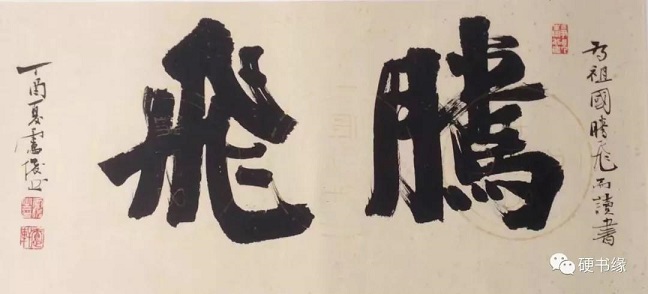 为祖國騰飛而讀書
騰飛
丁酉夏盧俊山
硬书缘